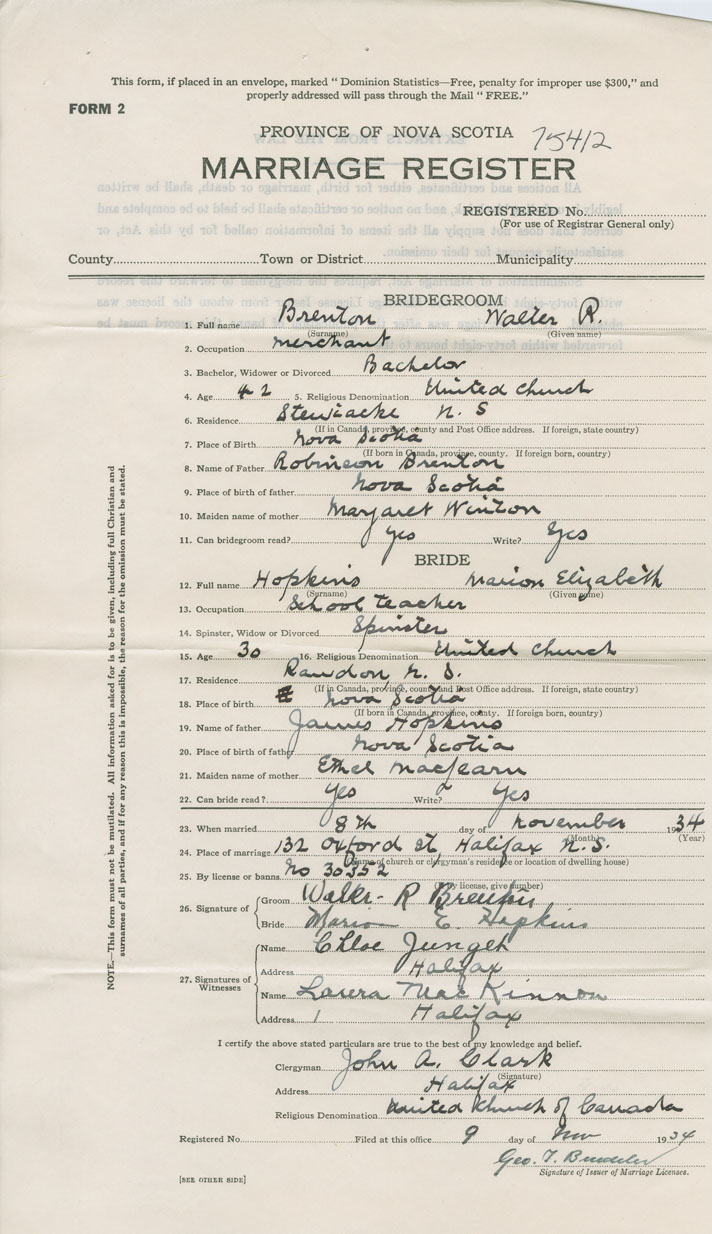 This form, if placed in an envelope, marked " Dominion Statistics—Free, penalty for improper use $300," and
properly addressed will pass through the Mail " FREE."
FORM 2
PROVINCE OF NOVA SCOTIA 75412
MARRIAGE REGISTER
REGISTERED No.
(For use of Registrar General only)
County Town or District Municipality
BRIDEGROOM
1. Full name Brenton Walter R.
(Surname) (Given name)
2. Occupation merchant
3. Bachelor, Widower or Divorced Bachelor
4. Age 42 5. Religious Denomination United Church
6. Residence Stewiacke N. S
(If in Canada, province, county and Post Office address. If foreign, state country)
7. Place of Birth Nova Scotia
(If born in Canada, province, county. If foreign born, country)
8. Name of Father Robinson Brenton
9. Place of birth of father Nova Scotia
10. Maiden name of mother Margaret Winton
11. Can bridegroom read? Yes Write? Yes
BRIDE
12. Full name Hopkins Marion Elizabeth
(Surname) (Given name)
13. Occupation School teacher
14. Spinster, Widow or Divorced Spinster
15. Age 30 16. Religious Denomination United Church
17. Residence Rawdon, N. S.
(If in Canada, province, county and Post Office address. If foreign, state country)
18. Place of birth Nova Scotia
(If born in Canada, province, county. If foreign born, country)
19. Name of father James Hopkins
20. Place of birth of father Nova Scotia
21. Maiden name of mother Ethel MacFearn
22. Can bride read? Yes Write? Yes
23. When married 8th day of November 1934
(Month) (Year)
24. Place of marriage 132 Oxford St, Halifax N.S.
(Name of church or clergyman's residence or location of dwelling house)
25. By license or banns No 30352
(If by license, give number)
26. Signature of Groom Walter R Brenton
Bride Marion E. Hopkins
27. Signatures of Witnesses
Name Chloe
Address Halifax
Name Laura MacKinnon
Address Halifax
NOTE.—This form must not be mutilated. All information asked for is to be given, including full Christian and
surnames of all parties, and if for any reason this is impossible, the reason for the omission must be stated.
I certify the above stated particulars are true to the best of my knowledge and belief.
Clergyman John A. Clark
(Signature)
Address Halifax
Religious Denomination United Church of Canada
Registered No. Filed at this office 9 day of Nov 1934
Geo. T.
Signature of Issuer of Marriage Licenses.
[SEE OTHER SIDE]